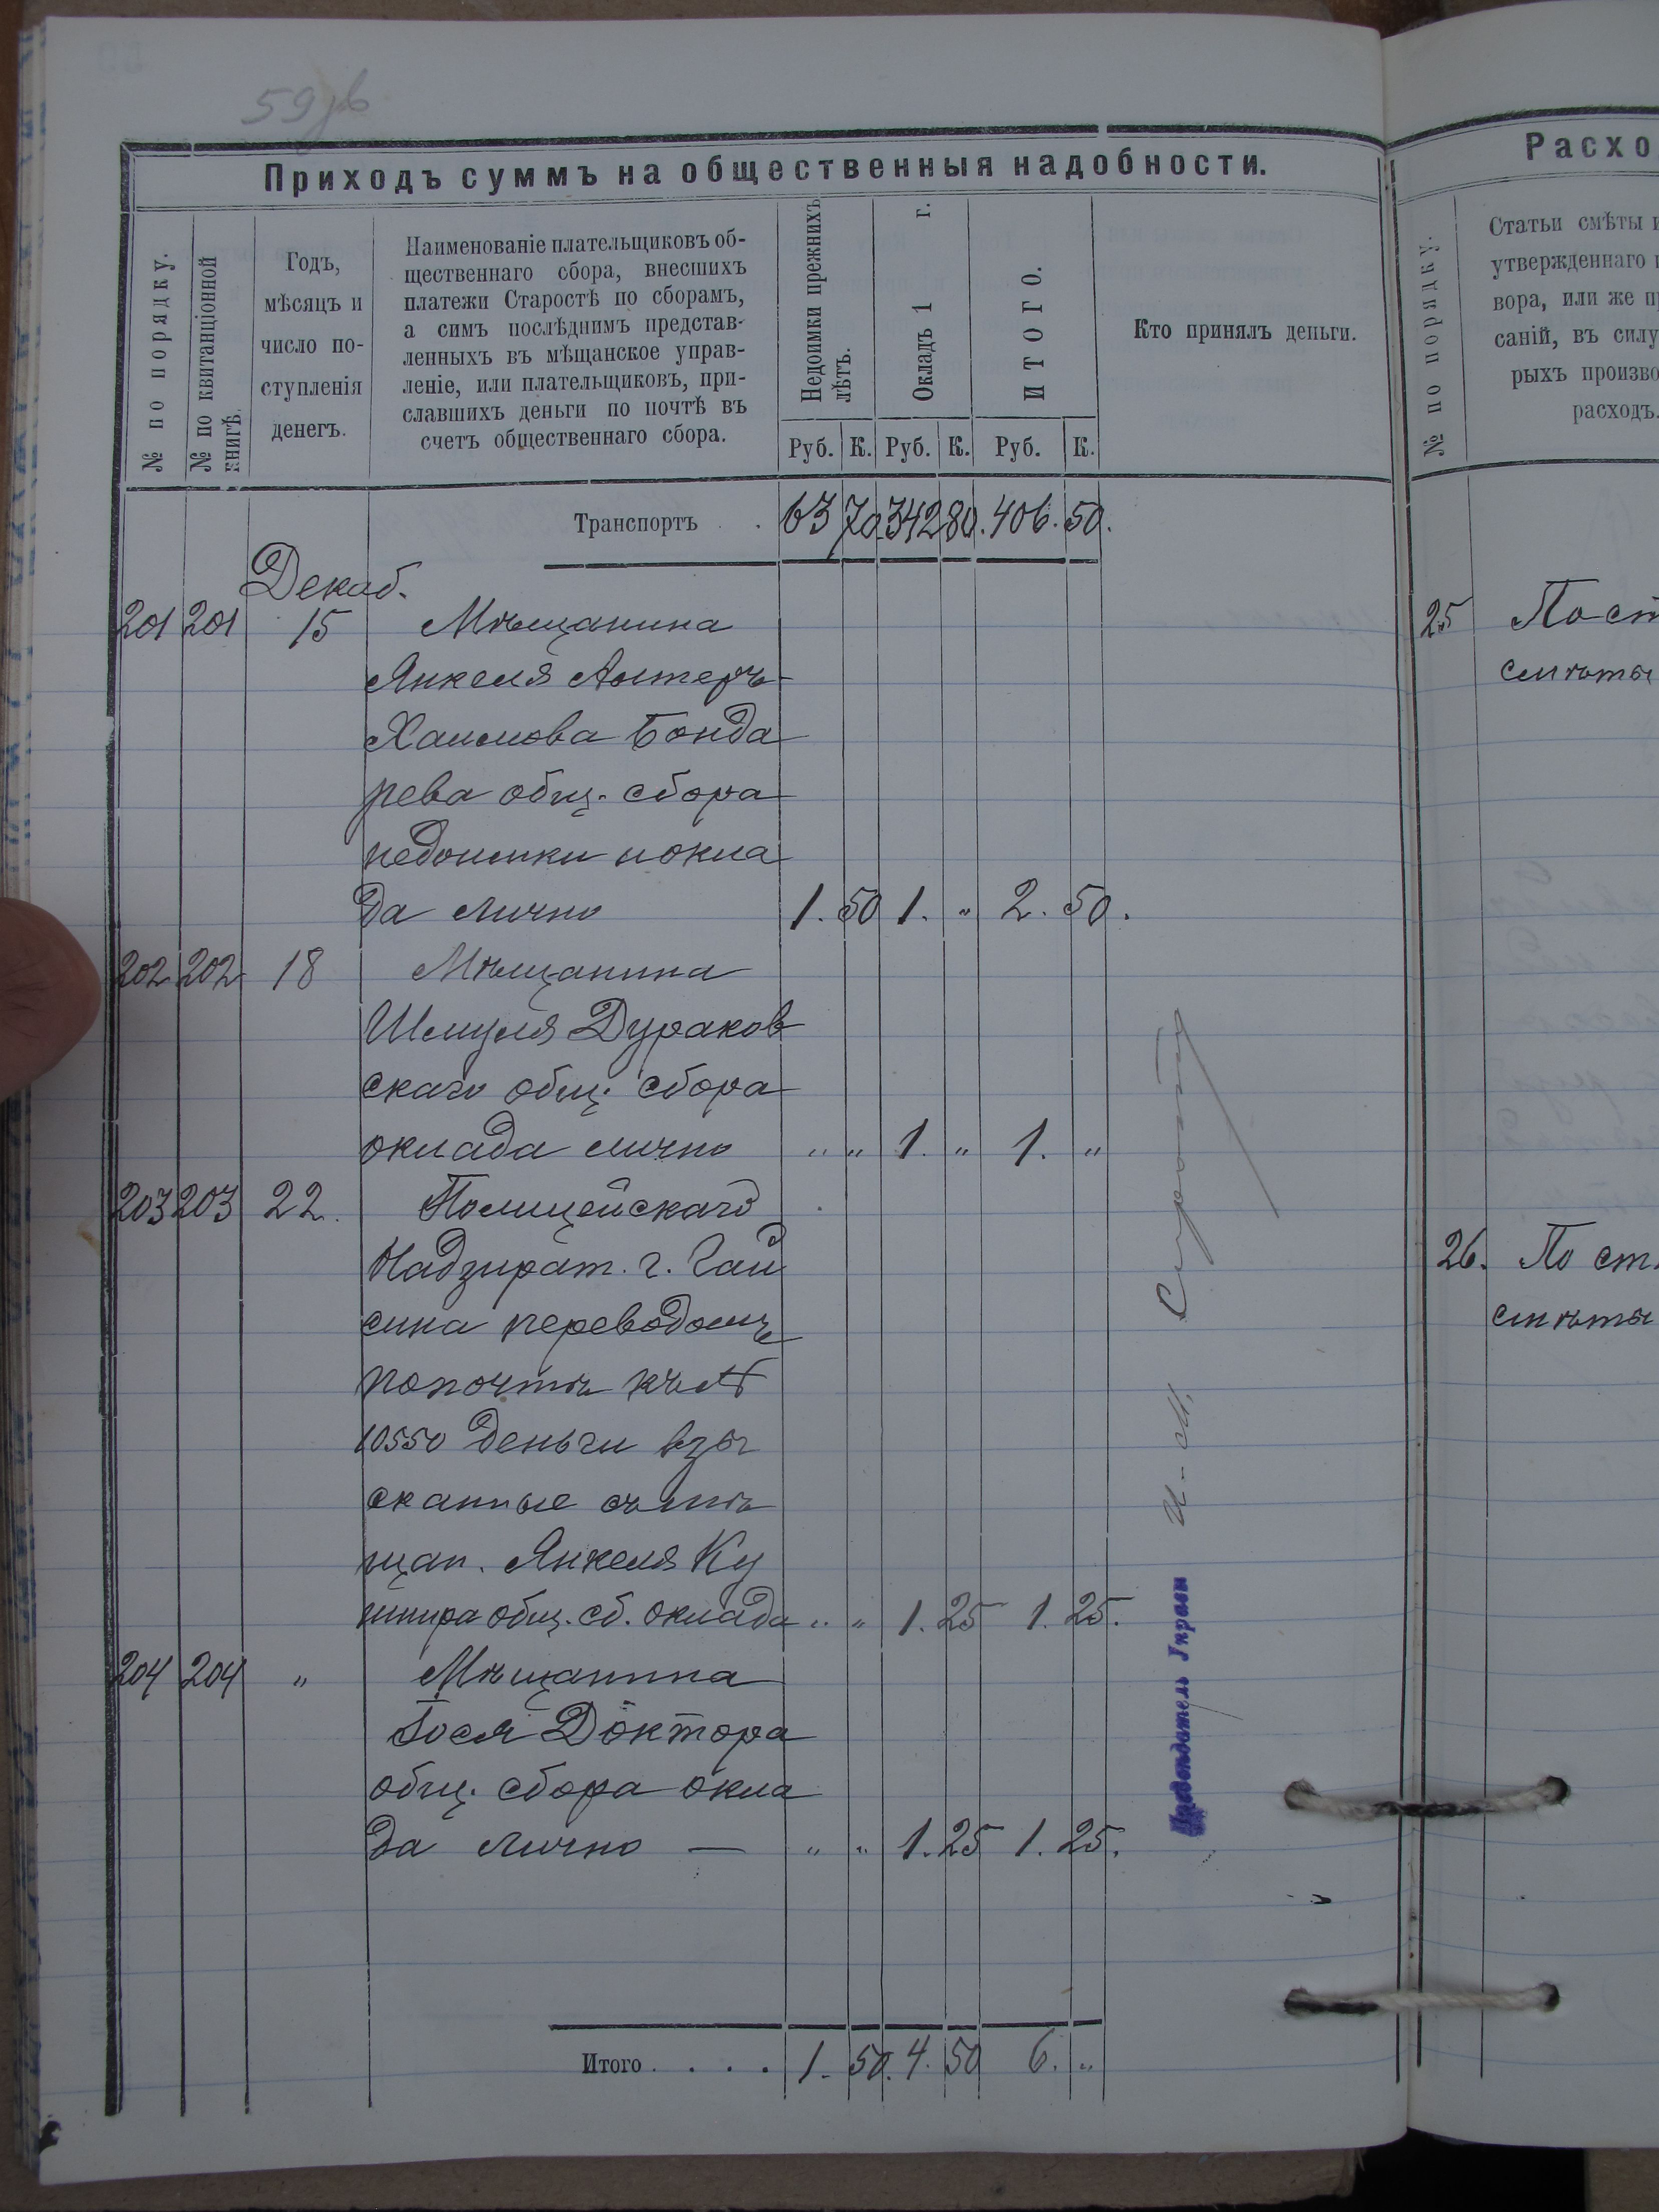 59 зв
Приходъ суммъ на общественныя надобности.
№ по порядку.
№ по квитанціонной книгѣ.
Годъ,
мѣсяцъ и
число по-
ступленія
денегъ.
Наименованіе плательщиковъ об-
щественнаго сбора, внесшихъ
платежи Старостѣ по сборамъ,
а симъ послѣднимъ представ-
ленныхъ въ мѣщанское управ-
леніе, или плательщиковъ, при-
славшихъ деньги по почтѣ въ
счетъ общественнаго сбора.
Недоимки прежнихъ лѣтъ.
Окладъ 1 г.
ИТОГО.
Кто принялъ деньги.
Руб. К. Руб. К. Руб. К.
Транспортъ . . 63 70. 342 80. 406. 50.
Декаб.
201 201 15 Мѣщанина
Янкеля Алтеръ-
Хаимова Бонда
рева общ. сбора
недоимки иокла
да лично 1. 50 1. „ 2. 50.
202 202 18 Мѣщанина
Шмуля Дураков
скаго общ. сбора
оклада лично „ „ 1. „ 1. „
203 203 22. Полицейскаго
Надзират. г. Гай
сина переводомъ
попочтѣ къ №
10550 деньги взы
сканные съ мѣ
щан. Янкеля Ку
шнира общ. сб. оклада „ „ 1. 25 1. 25.
204 204 „ Мѣщанина
Іося Доктора
общ. сбора окла
да лично — „ „ 1. 25 1. 25.
Итого . . . . 1. 50. 4. 50 6. „
Предсѣдатель Управы
Расхо
№ по порядку.
Статьи смѣты и
утвержденнаго
вора, или же п
саній, въ силу
рыхъ произво
расходъ.
25 По ст
смѣты
26. По ст.
смѣты